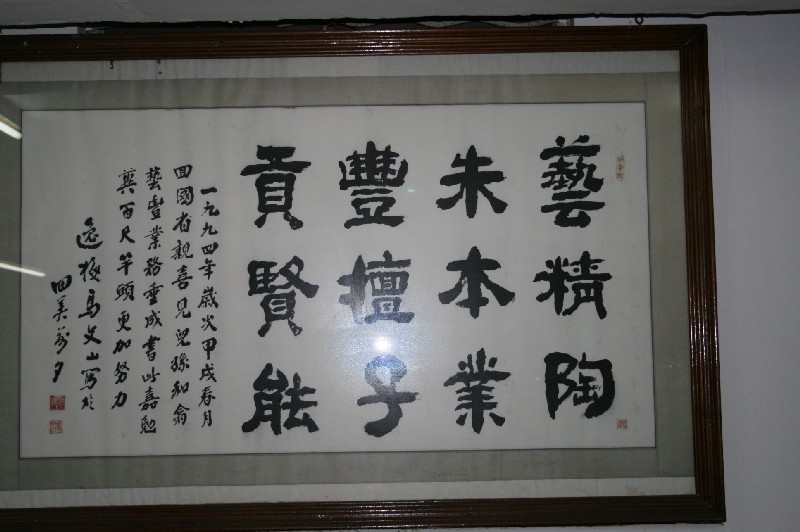 藝精陶
朱本業
豐擅子
貢賢能
一九九四年歲次甲戌春月
回國省親喜見兒孫和翁
藝豐業務垂成書此嘉勉
冀百尺竿頭更加努力
馬文山寫於
回美前夕